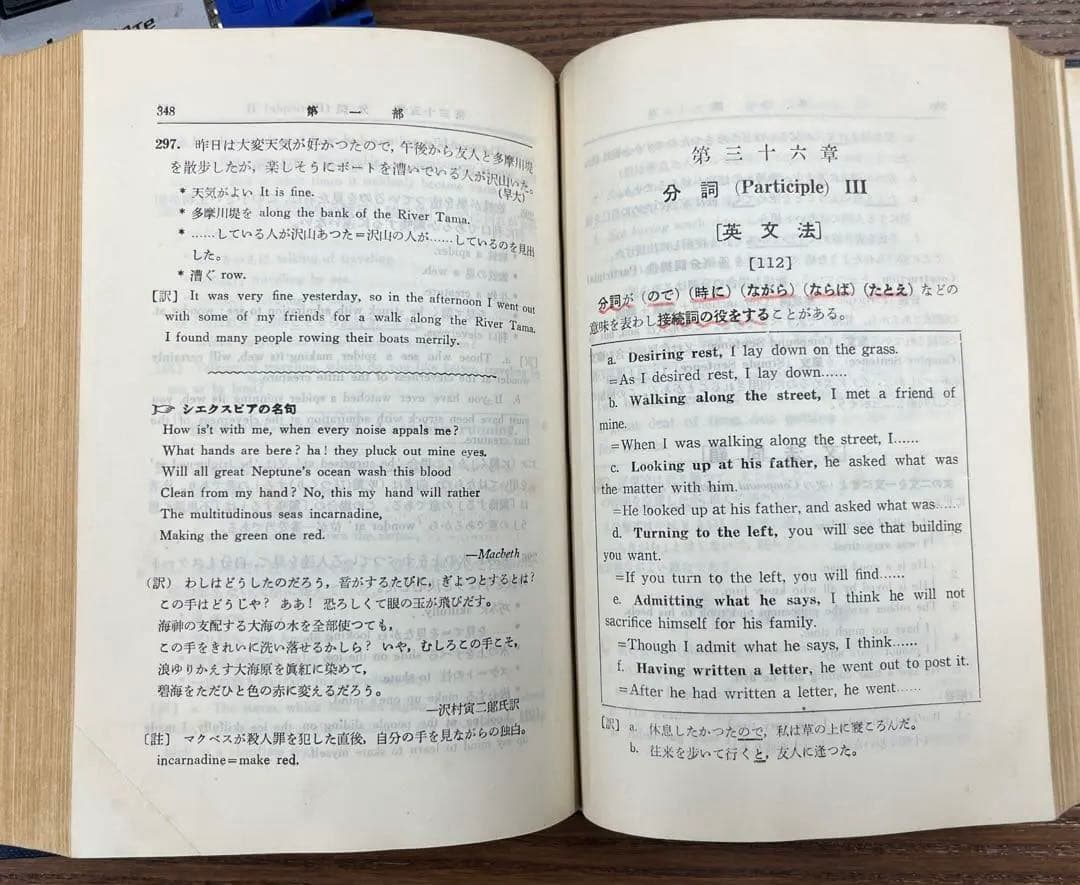 348
第一部
297. 昨日は大変天気が好かつたので，午後から友人と多摩川堤
を散歩したが，楽しそうにボートを漕いでいる人が沢山いた。
(早大)
* 天気がよい It is fine.
* 多摩川堤を along the bank of the River Tama.
* ……している人が沢山あつた＝沢山の人が……しているのを見出
した。
* 漕ぐ row.
[訳] It was very fine yesterday, so in the afternoon I went out
with some of my friends for a walk along the River Tama.
I found many people rowing their boats merrily.
☞ シエクスピアの名句
How is't with me, when every noise appals me?
What hands are here? ha! they pluck out mine eyes.
Will all great Neptune's ocean wash this blood
Clean from my hand? No, this my hand will rather
The multitudinous seas incarnadine,
Making the green one red.
—Macbeth
(訳) わしはどうしたのだろう，音がするたびに，ぎよつとするとは?
この手はどうじや? ああ! 恐ろしくて眼の玉が飛びだす。
海神の支配する大海の水を全部使つても，
この手をきれいに洗い落せるかしら? いや，むしろこの手こそ，
浪ゆりかえす大海原を眞紅に染めて，
碧海をただひと色の赤に変えるだろう。
—沢村寅二郎氏訳
[註] マクベスが殺人罪を犯した直後，自分の手を見ながらの独白。
incarnadine＝make red.
第三十六章
分詞 (Participle) III
[英文法]
[112]
分詞が (ので) (時に) (ながら) (ならば) (たとえ) などの
意味を表わし接続詞の役をすることがある。
a. Desiring rest, I lay down on the grass.
=As I desired rest, I lay down……
b. Walking along the street, I met a friend of
mine.
=When I was walking along the street, I……
c. Looking up at his father, he asked what was
the matter with him.
=He looked up at his father, and asked what was……
d. Turning to the left, you will see that building
you want.
=If you turn to the left, you will find……
e. Admitting what he says, I think he will not
sacrifice himself for his family.
=Though I admit what he says, I think……
f. Having written a letter, he went out to post it.
=After he had written a letter, he went……
[訳] a. 休息したかつたので，私は草の上に寝ころんだ。
b. 往来を歩いて行くと，友人に逢つた。